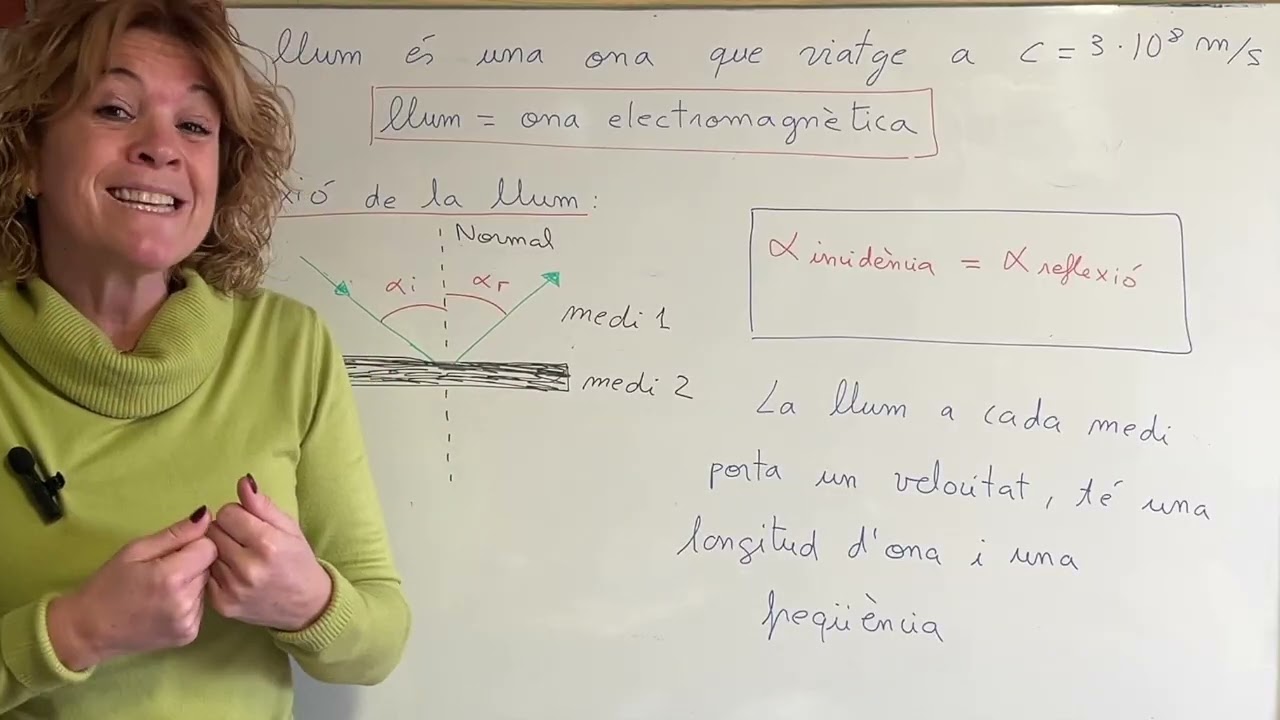 llum és una ona que viatge a c = 3·10⁸ m/s
llum = ona electromagnètica
xió de la llum:
Normal
αi αr
medi 1
medi 2
α incidència = α reflexió
La llum a cada medi
porta un velocitat, té una
longitud d'ona i una
freqüència